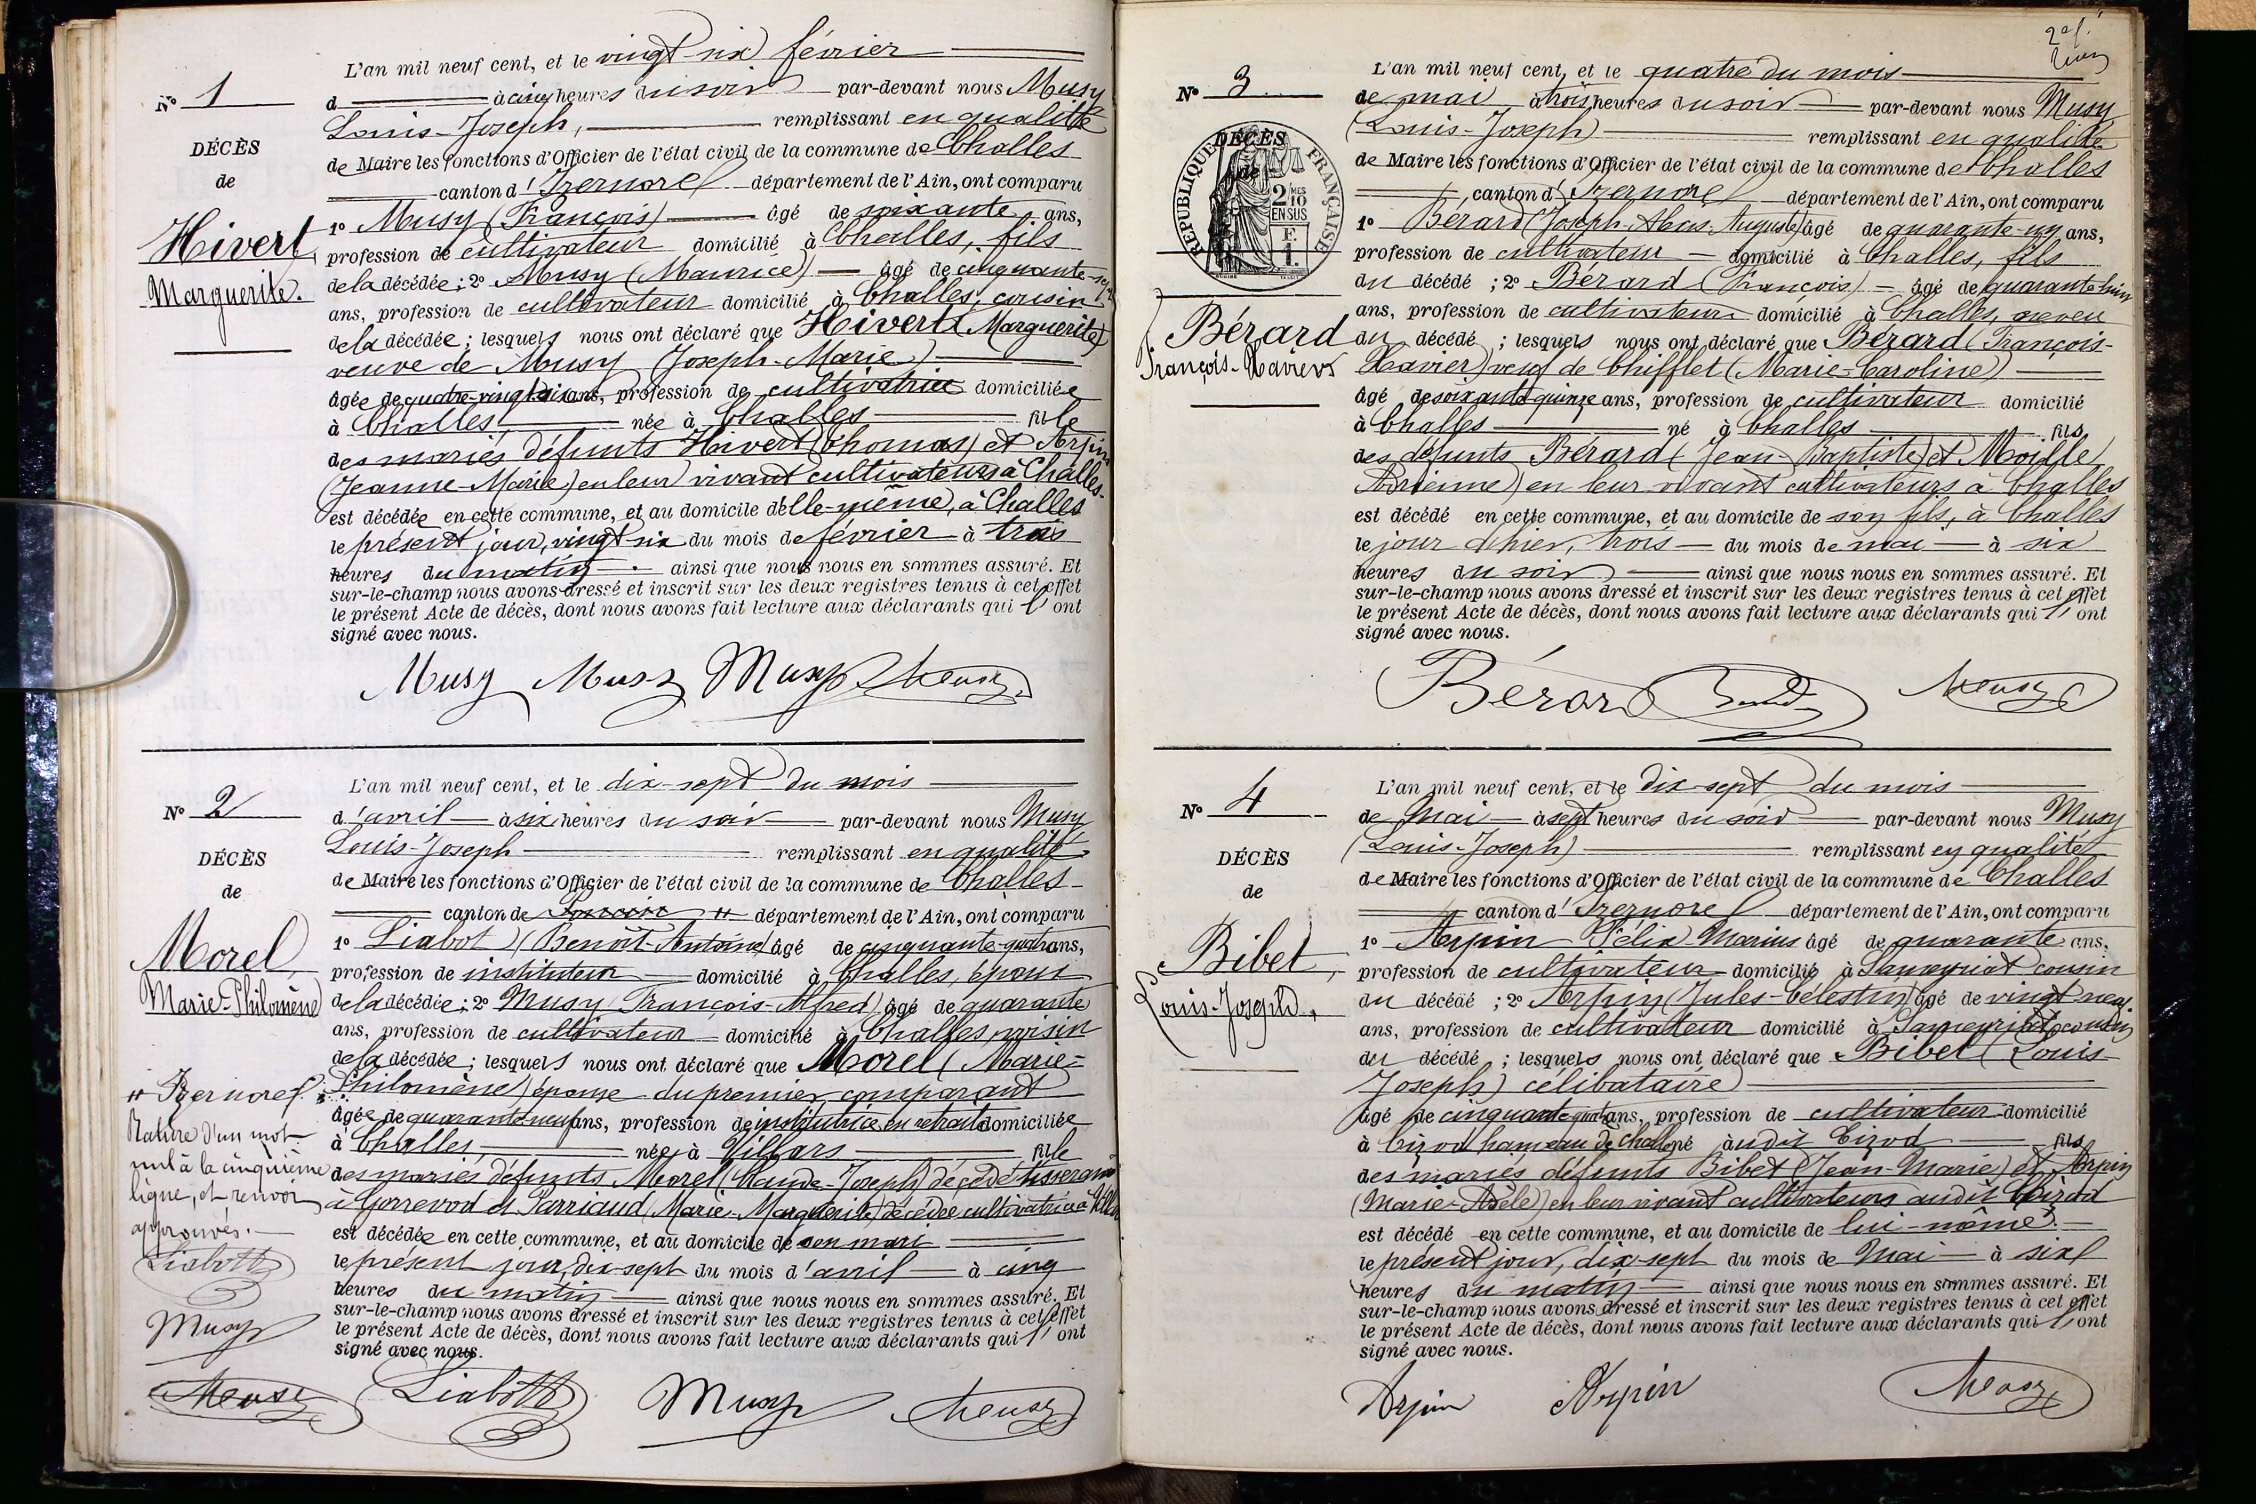 N° 1
DÉCÈS
de
Hivert,
Marguerite.
L'an mil neuf cent, et le vingt six février
d à cinq heures du soir par-devant nous Musy
Louis-Joseph, remplissant en qualité
de Maire les fonctions d'Officier de l'état civil de la commune de Challes
canton d'Izernore département de l'Ain, ont comparu
1° Musy (François) âgé de soixante ans,
profession de cultivateur domicilié à Challes, fils
de la décédée ; 2° Musy (Maurice) âgé de cinquante-sept
ans, profession de cultivateur domicilié à Challes, cousin
de la décédée ; lesquels nous ont déclaré que Hivert (Marguerite)
veuve de Musy (Joseph-Marie)
âgée de quatre-vingt trois ans, profession de cultivatrice domiciliée
à Challes née à Challes fille
des mariés défunts Hivert (Thomas) et Arpin
(Jeanne-Marie) en leur vivant cultivateurs à Challes.
est décédée en cette commune, et au domicile d'elle-même, à Challes
le présent jour, vingt six du mois de février à trois
heures du matin ainsi que nous nous en sommes assuré. Et
sur-le-champ nous avons dressé et inscrit sur les deux registres tenus à cet effet
le présent Acte de décès, dont nous avons fait lecture aux déclarants qui l'ont
signé avec nous.
Musy Musy Musy Meusy
N° 2
DÉCÈS
de
Morel,
Marie-Philomène
L'an mil neuf cent, et le dix-sept du mois
d'avril à six heures du soir par-devant nous Musy
Louis-Joseph remplissant en qualité
de Maire les fonctions d'Officier de l'état civil de la commune de Challes
canton de Poncin # département de l'Ain, ont comparu
1° Liabot (Benoît-Antoine) âgé de cinquante-quatre ans,
profession de instituteur domicilié à Challes, époux
de la décédée ; 2° Musy François-Alfred) âgé de quarante
ans, profession de cultivateur domicilié à Challes, voisin
de la décédée ; lesquels nous ont déclaré que Morel (Marie-
Philomène) épouse du premier comparant
âgée de quarante-neuf ans, profession de institutrice en retraite domiciliée
à Challes, née à Villars fille
des mariés défunts Morel (Claude-Joseph) décédé tisserand
à Gorrevod et Parriaud (Marie-Marguerite) décédée cultivatrice à Villars
est décédée en cette commune, et au domicile de son mari
le présent jour, dix-sept du mois d'avril à cinq
heures du matin ainsi que nous nous en sommes assuré. Et
sur-le-champ nous avons dressé et inscrit sur les deux registres tenus à cet effet
le présent Acte de décès, dont nous avons fait lecture aux déclarants qui l'ont
signé avec nous.
# Izernore
Rature d'un mot
nul à la cinquième
ligne, et renvoi
approuvés.
Liabott
Musy
Meusy Liabott Musy Meusy
N° 3
DÉCÈS
de
RÉPUBLIQUE FRANÇAISE
2 MES
10
EN SUS
F.
1.
Bérard
François-Xavier
L'an mil neuf cent, et le quatre du mois
de mai à trois heures du soir par-devant nous Musy
(Louis-Joseph) remplissant en qualité
de Maire les fonctions d'Officier de l'état civil de la commune de Challes
canton d'Izernore département de l'Ain, ont comparu
1° Bérard (Joseph Auguste) âgé de quarante-un ans,
profession de cultivateur domicilié à Challes, fils
du décédé ; 2° Bérard (François) âgé de quarante huit
ans, profession de cultivateur domicilié à Challes, neveu
du décédé ; lesquels nous ont déclaré que Bérard (François-
Xavier) veuf de Chifflet (Marie-Caroline)
âgé de soixante quinze ans, profession de cultivateur domicilié
à Challes né à Challes fils
des défunts Bérard (Jean-Baptiste) et Moille
Adrienne) en leur vivant cultivateurs à Challes
est décédé en cette commune, et au domicile de son fils, à Challes
le jour d'hier, trois du mois de mai à six
heures du soir ainsi que nous nous en sommes assuré. Et
sur-le-champ nous avons dressé et inscrit sur les deux registres tenus à cet effet
le présent Acte de décès, dont nous avons fait lecture aux déclarants qui l'ont
signé avec nous.
Bérard Meusy
N° 4
DÉCÈS
de
Bibet,
Louis-Joseph,
L'an mil neuf cent, et le dix-sept du mois
de Mai à sept heures du soir par-devant nous Musy
(Louis-Joseph) remplissant en qualité
de Maire les fonctions d'Officier de l'état civil de la commune de Challes
canton d'Izernore département de l'Ain, ont comparu
1° Arpin Félix-Marius âgé de quarante ans,
profession de cultivateur domicilié à Samognat cousin
du décédé ; 2° Arpin (Jules-Célestin) âgé de vingt neuf
ans, profession de cultivateur domicilié à cousin
du décédé ; lesquels nous ont déclaré que Bibet (Louis-
Joseph) célibataire
âgé de cinquante quatre ans, profession de cultivateur domicilié
à Cizod hameau de Challes né audit Cizod fils
des mariés défunts Bibet (Jean-Marie) et Arpin
(Marie-Adèle) en leur vivant cultivateurs audit Cizod
est décédé en cette commune, et au domicile de lui-même.
le présent jour, dix-sept du mois de Mai à six
heures du matin ainsi que nous nous en sommes assuré. Et
sur-le-champ nous avons dressé et inscrit sur les deux registres tenus à cet effet
le présent Acte de décès, dont nous avons fait lecture aux déclarants qui l'ont
signé avec nous.
Arpin Arpin Meusy